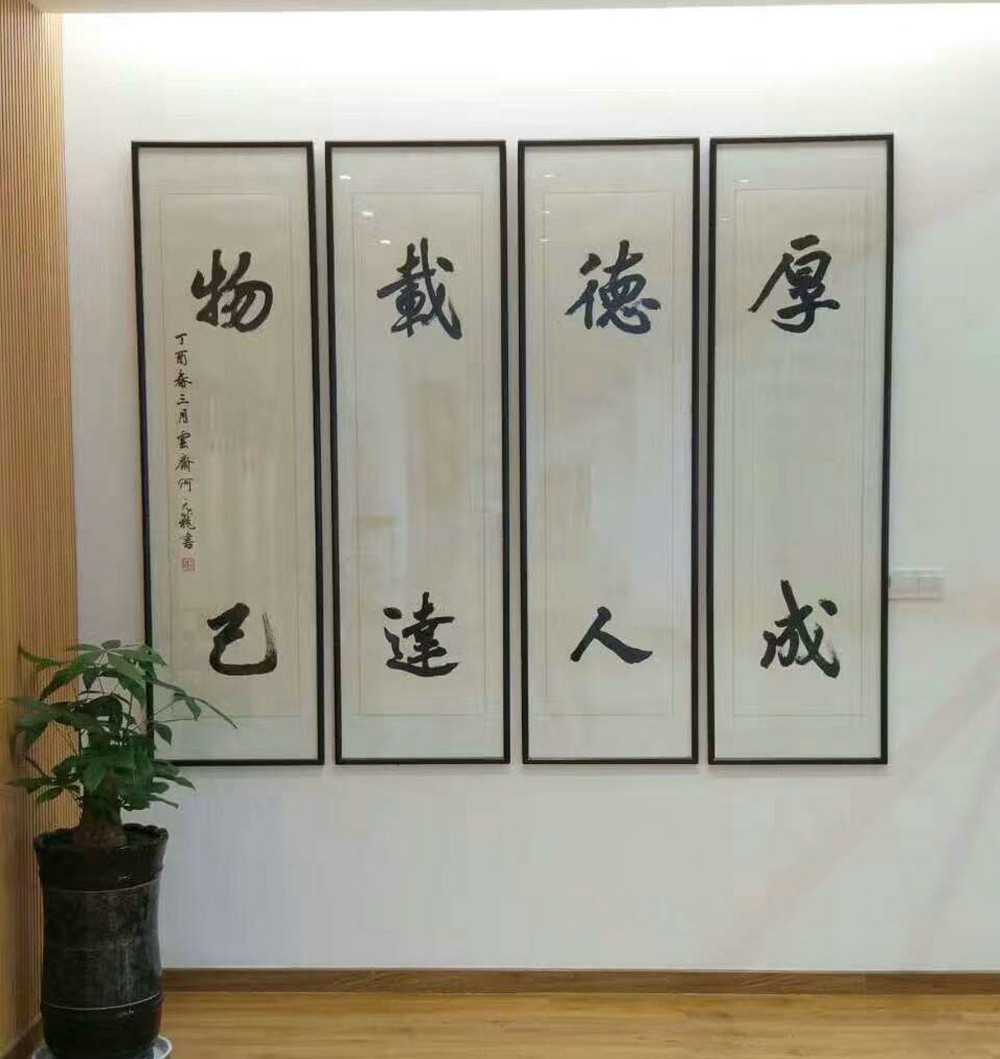 厚德載物
成人達己
丁酉春三月雲齋何
書